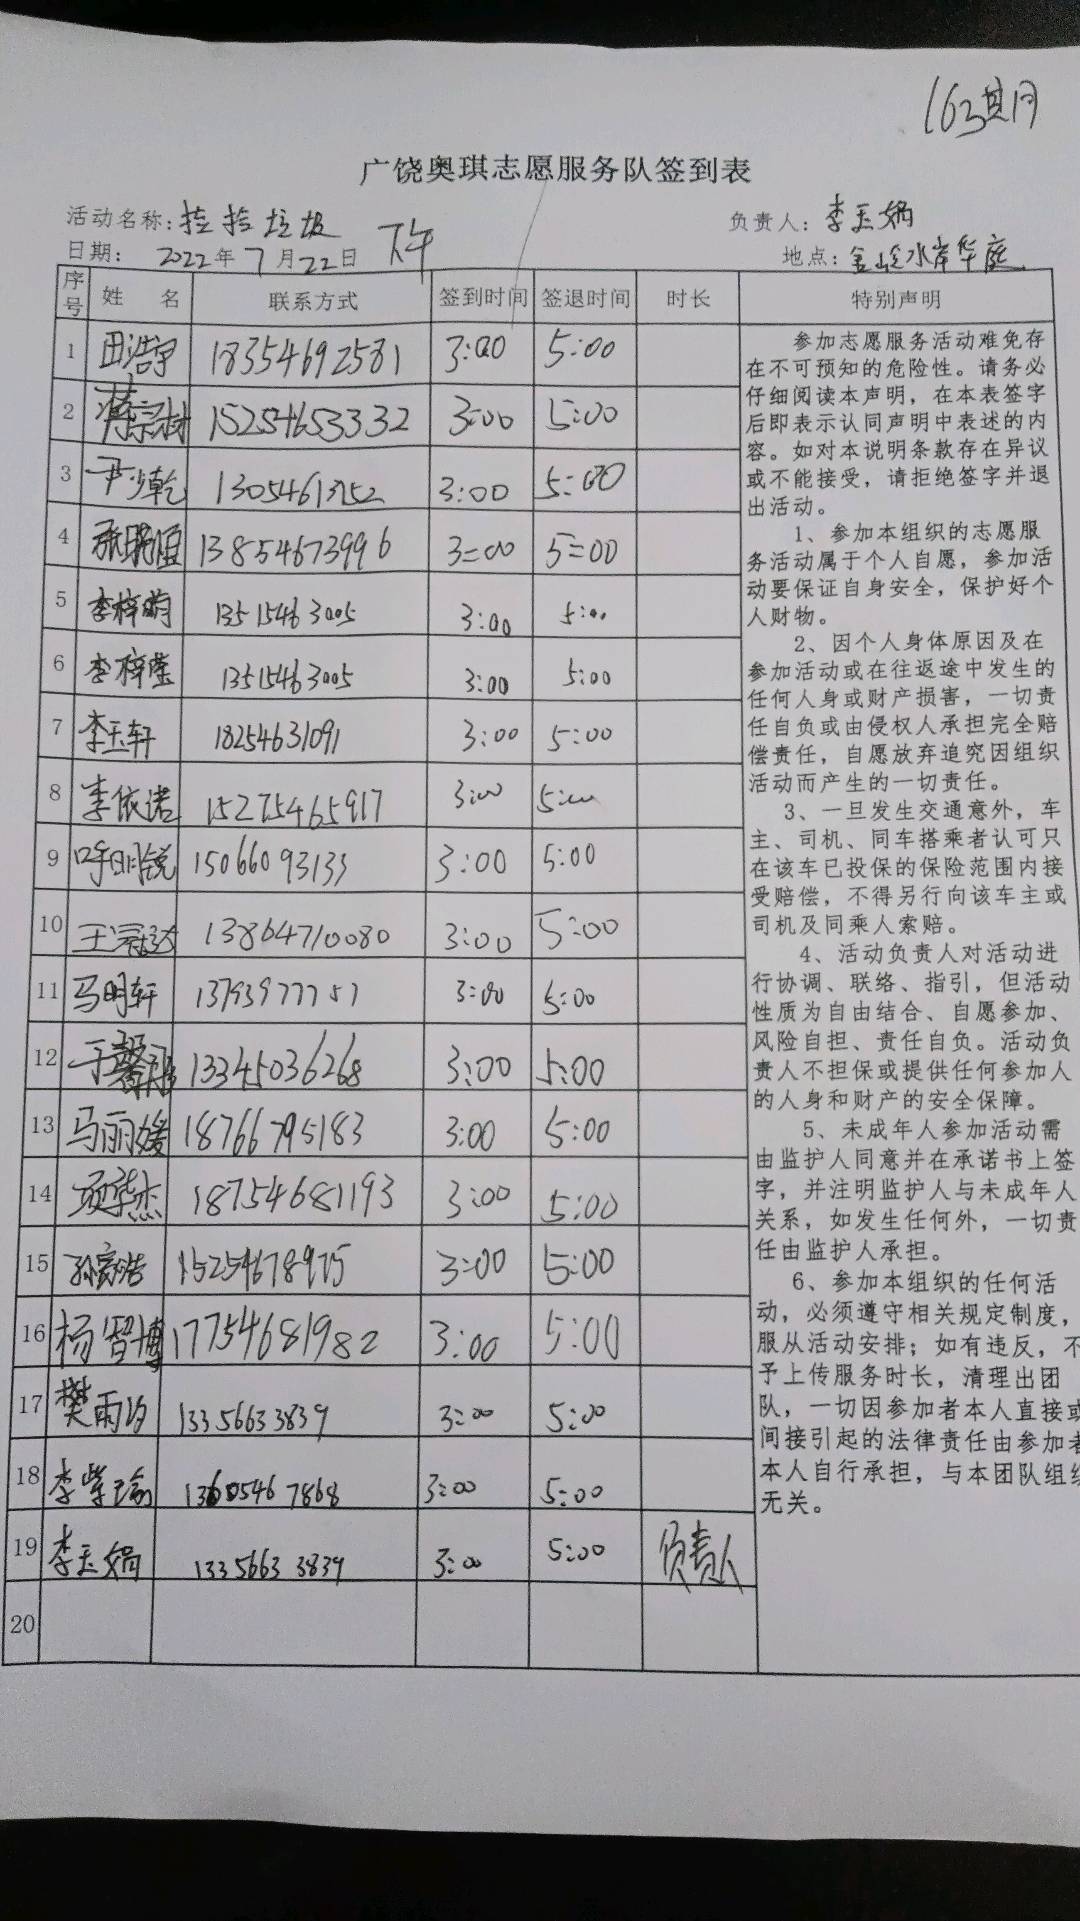 163期
广饶奥琪志愿服务队签到表
活动名称: 捡拾垃圾 负责人: 李玉娟
日期: 2022年7月22日 下午 地点: 金岭水岸华庭
序号 姓 名 联系方式 签到时间 签退时间 时长 特别声明
1 田浩宇 18354692581 3:00 5:00
2 蒋宗树 15254653332 3:00 5:00
3 尹少乾 13054613752 3:00 5:00
4 张明恒 13854673996 3:00 5:00
5 李梓萌 13515463005 3:00 5:00
6 李梓莹 13515463005 3:00 5:00
7 李玉轩 18254631091 3:00 5:00
8 李依诺 15275465917 3:00 5:00
9 呼明锐 15066093133 3:00 5:00
10 王冠达 13864710080 3:00 5:00
11 马明轩 13793977757 3:00 5:00
12 于馨 13345036268 3:00 5:00
13 马丽媛 18766795183 3:00 5:00
14 华杰 18754681193 3:00 5:00
15 孙家浩 15254678975 3:00 5:00
16 杨智博 17754681982 3:00 5:00
17 樊雨汐 13356633839 3:00 5:00
18 李紫瑜 13605467868 3:00 5:00
19 李玉娟 13356633839 3:00 5:00 负责人
20
参加志愿服务活动难免存
在不可预知的危险性。请务必
仔细阅读本声明，在本表签字
后即表示认同声明中表述的内
容。如对本说明条款存在异议
或不能接受，请拒绝签字并退
出活动。
1、参加本组织的志愿服
务活动属于个人自愿，参加活
动要保证自身安全，保护好个
人财物。
2、因个人身体原因及在
参加活动或在往返途中发生的
任何人身或财产损害，一切责
任自负或由侵权人承担完全赔
偿责任，自愿放弃追究因组织
活动而产生的一切责任。
3、一旦发生交通意外，车
主、司机、同车搭乘者认可只
在该车已投保的保险范围内接
受赔偿，不得另行向该车主或
司机及同乘人索赔。
4、活动负责人对活动进
行协调、联络、指引，但活动
性质为自由结合、自愿参加、
风险自担、责任自负。活动负
责人不担保或提供任何参加人
的人身和财产的安全保障。
5、未成年人参加活动需
由监护人同意并在承诺书上签
字，并注明监护人与未成年人
关系，如发生任何外，一切责
任由监护人承担。
6、参加本组织的任何活
动，必须遵守相关规定制度，
服从活动安排；如有违反，不
予上传服务时长，清理出团
队，一切因参加者本人直接或
间接引起的法律责任由参加者
本人自行承担，与本团队组织
无关。